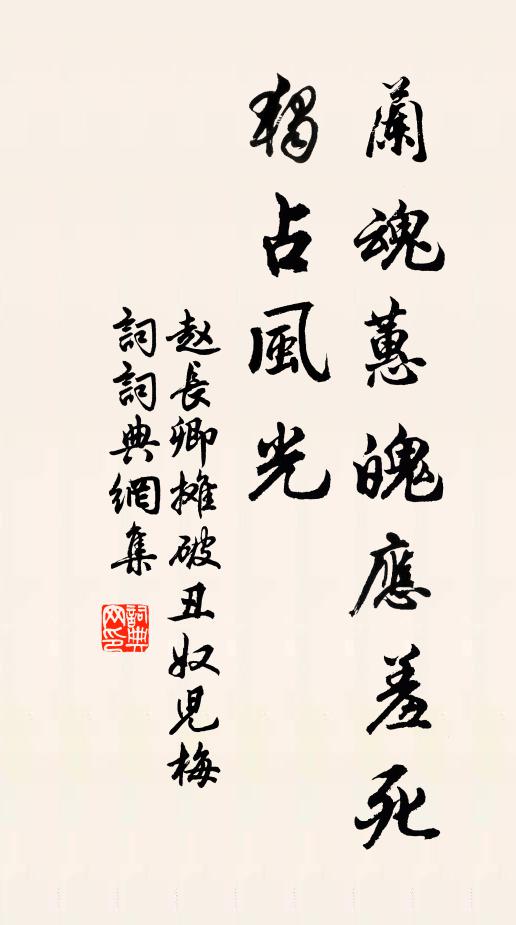 蘭魂蕙魄應羞死
獨占風光
赵長卿摊破丑奴児梅
詞詞典網集
詞典网印